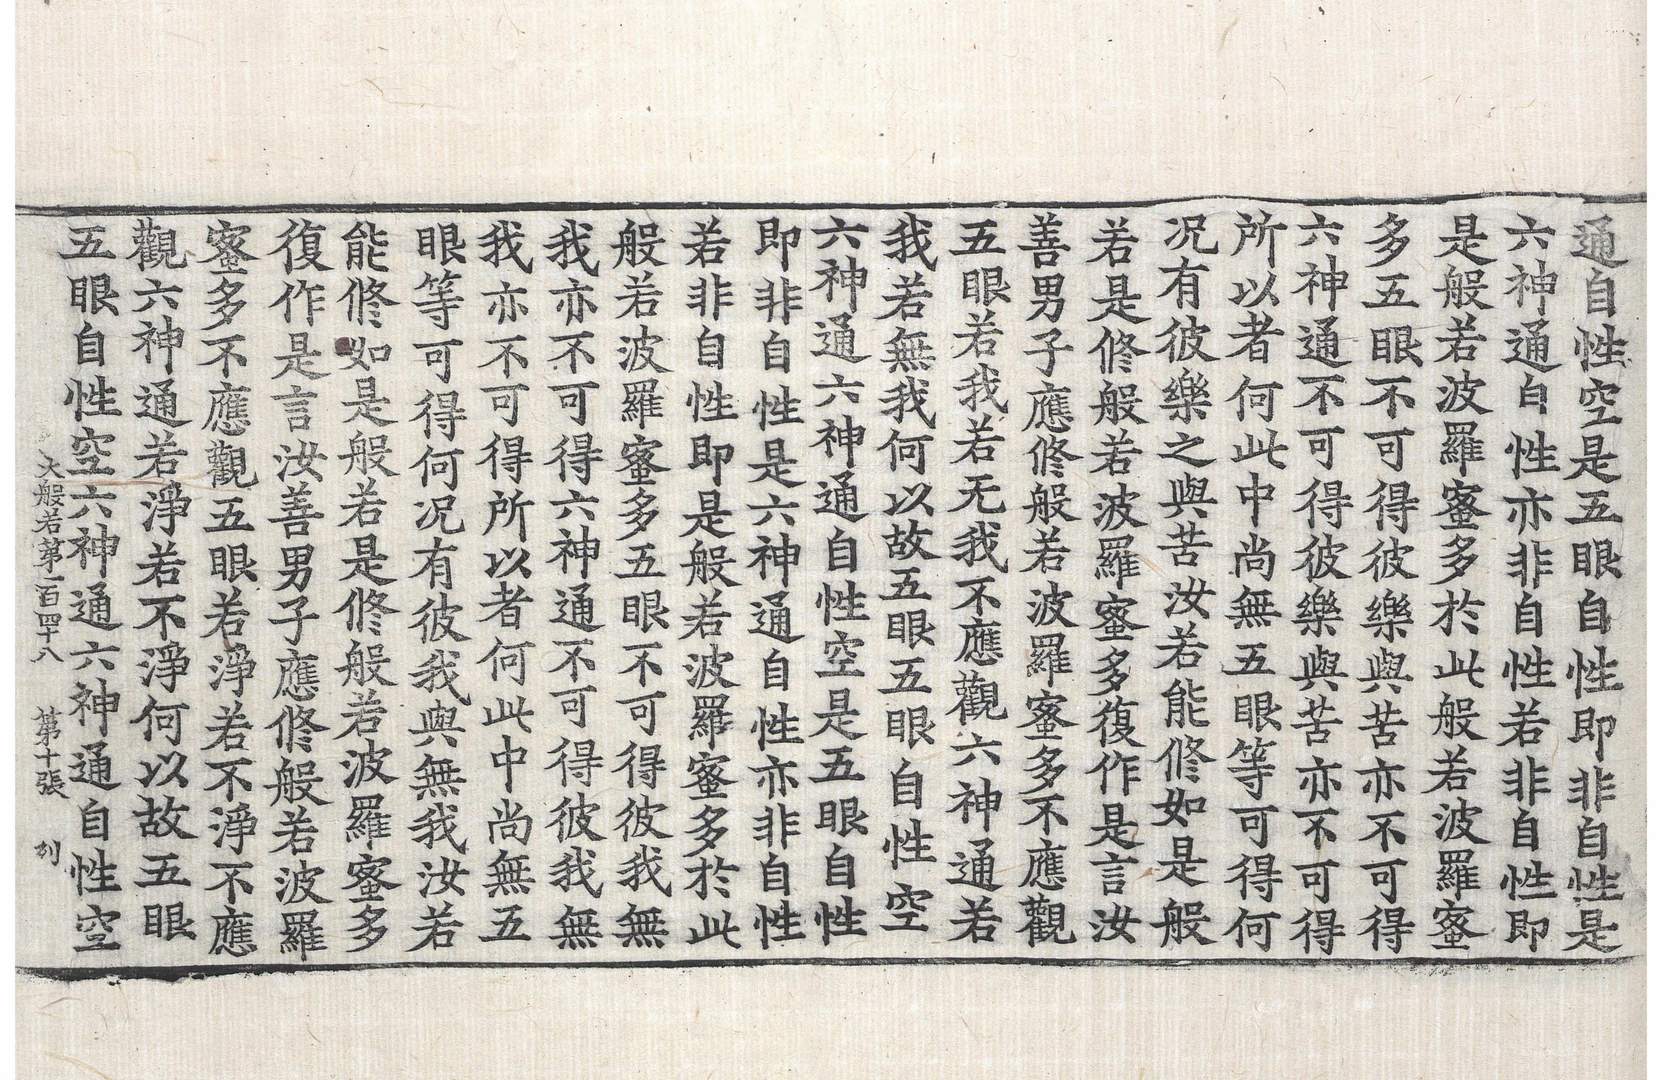 通自性空是五眼自性即非自性是
六神通自性亦非自性若非自性即
是般若波羅蜜多於此般若波羅蜜
多五眼不可得彼樂與苦亦不可得
六神通不可得彼樂與苦亦不可得
所以者何此中尚無五眼等可得何
况有彼樂之與苦汝若能修如是般
若是修般若波羅蜜多復作是言汝
善男子應修般若波羅蜜多不應觀
五眼若我若无我不應觀六神通若
我若無我何以故五眼五眼自性空
六神通六神通自性空是五眼自性
即非自性是六神通自性亦非自性
若非自性即是般若波羅蜜多於此
般若波羅蜜多五眼不可得彼我無
我亦不可得六神通不可得彼我無
我亦不可得所以者何此中尚無五
眼等可得何况有彼我與無我汝若
能修如是般若是修般若波羅蜜多
復作是言汝善男子應修般若波羅
蜜多不應觀五眼若淨若不淨不應
觀六神通若淨若不淨何以故五眼
五眼自性空六神通六神通自性空
大般若第一百四十八 第十張 列